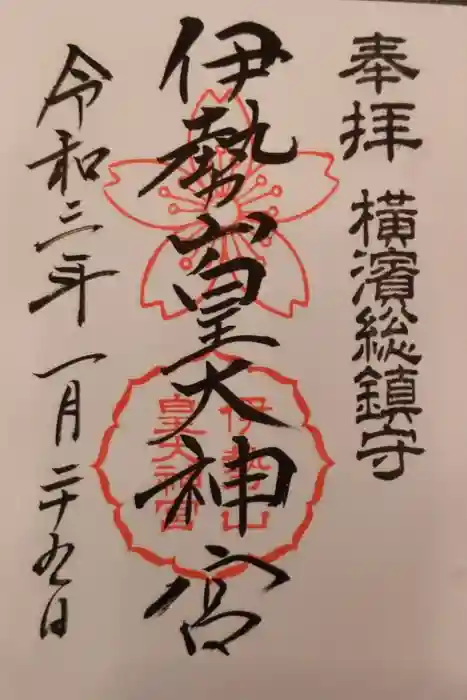 奉拝 横濱総鎮守
伊勢山皇大神宮
伊勢山
皇大神宮
令和三年一月二十九日